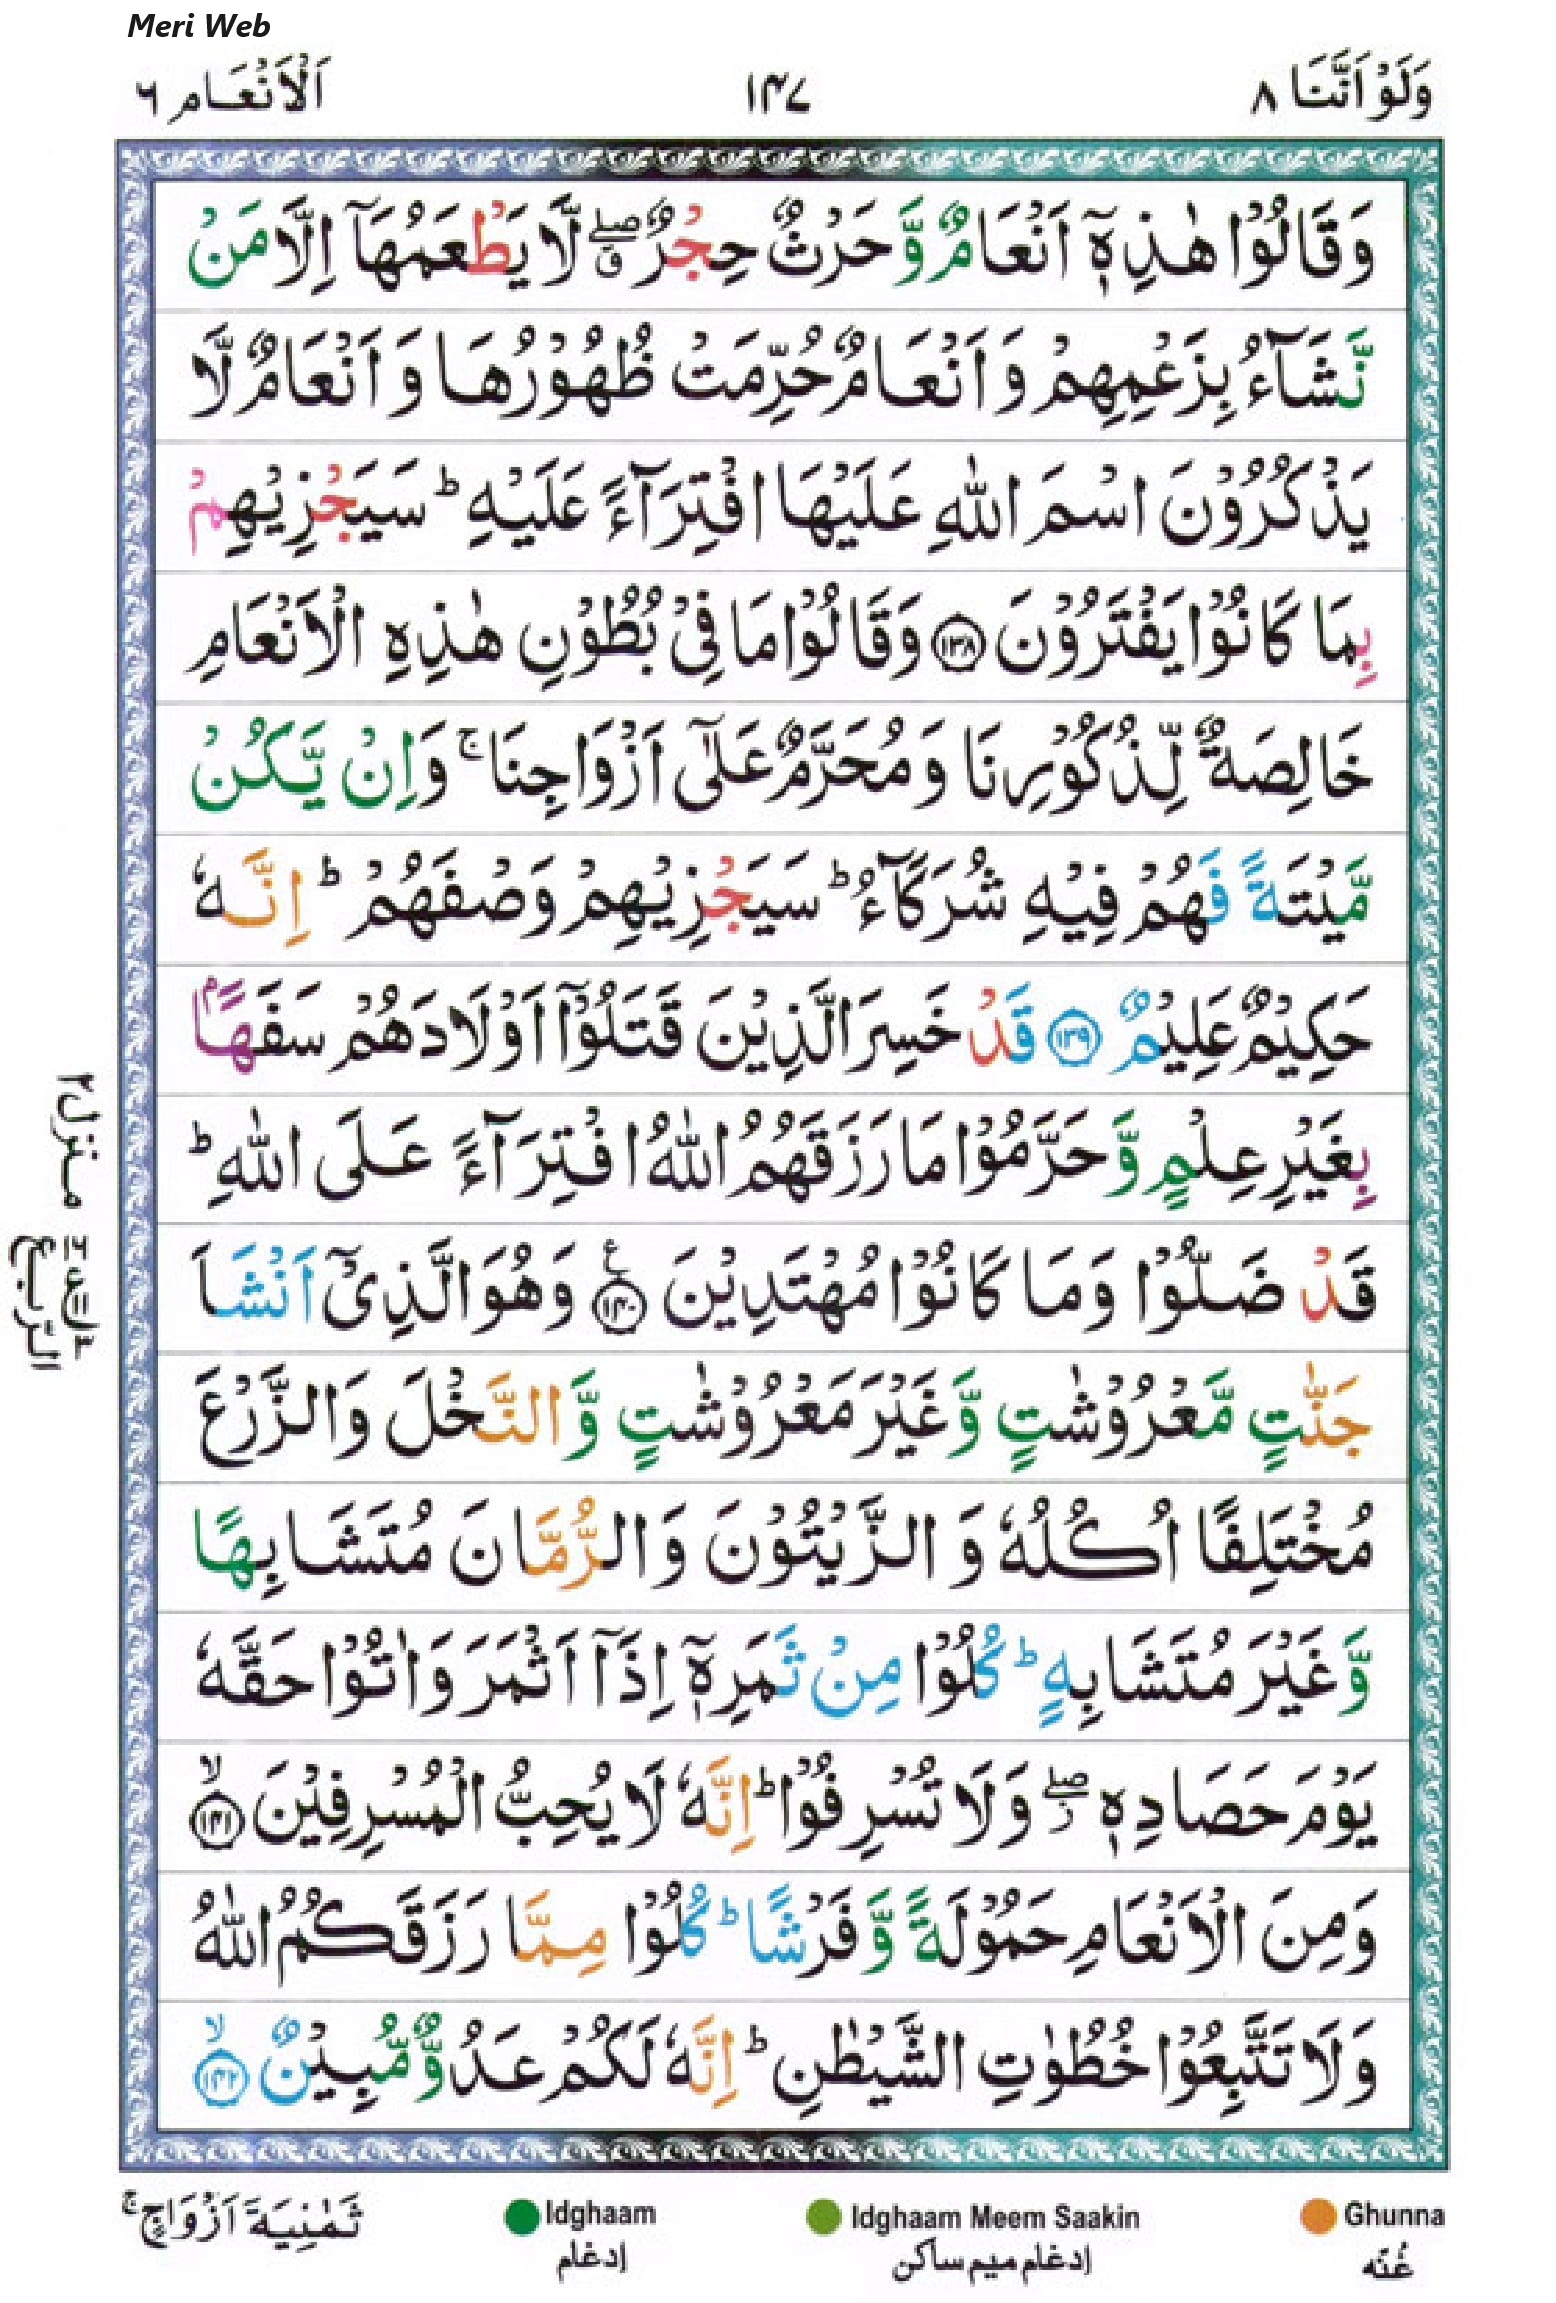 Meri Web
وَلَوْ اَنَّنَا ٨ ١٤٧ اَلْاَنْعَام ٦
وَقَالُوْا هٰذِهٖۤ اَنْعَامٌ وَّحَرْثٌ حِجْرٌ ۖۗ لَّا يَطْعَمُهَاۤ اِلَّا مَنْ
نَّشَآءُ بِزَعْمِهِمْ وَ اَنْعَامٌ حُرِّمَتْ ظُهُوْرُهَا وَ اَنْعَامٌ لَّا
يَذْكُرُوْنَ اسْمَ اللّٰهِ عَلَيْهَا افْتِرَآءً عَلَيْهِ ؕ سَيَجْزِيْهِمْ
بِمَا كَانُوْا يَفْتَرُوْنَ ﴿١٣٨﴾ وَقَالُوْا مَا فِىْ بُطُوْنِ هٰذِهِ الْاَنْعَامِ
خَالِصَةٌ لِّذُكُوْرِنَا وَ مُحَرَّمٌ عَلٰٓى اَزْوَاجِنَا ۚ وَاِنْ يَّكُنْ
مَّيْتَةً فَهُمْ فِيْهِ شُرَكَآءُ ؕ سَيَجْزِيْهِمْ وَصْفَهُمْ ؕ اِنَّهٗ
حَكِيْمٌ عَلِيْمٌ ﴿١٣٩﴾ قَدْ خَسِرَ الَّذِيْنَ قَتَلُوْۤا اَوْلَادَهُمْ سَفَهًۢا
بِغَيْرِ عِلْمٍ وَّ حَرَّمُوْا مَا رَزَقَهُمُ اللّٰهُ افْتِرَآءً عَلَى اللّٰهِ ؕ
قَدْ ضَلُّوْا وَمَا كَانُوْا مُهْتَدِيْنَ ﴿١٤٠﴾ ع وَهُوَ الَّذِىْۤ اَنْشَاَ
جَنّٰتٍ مَّعْرُوْشٰتٍ وَّ غَيْرَ مَعْرُوْشٰتٍ وَّالنَّخْلَ وَالزَّرْعَ
مُخْتَلِفًا اُكُلُهٗ وَ الزَّيْتُوْنَ وَالرُّمَّانَ مُتَشَابِهًا
وَّ غَيْرَ مُتَشَابِهٍ ؕ كُلُوْا مِنْ ثَمَرِهٖۤ اِذَاۤ اَثْمَرَ وَاٰتُوْا حَقَّهٗ
يَوْمَ حَصَادِهٖ ۖ وَلَا تُسْرِفُوْا ؕ اِنَّهٗ لَا يُحِبُّ الْمُسْرِفِيْنَ ۙ﴿١٤١﴾
وَمِنَ الْاَنْعَامِ حَمُوْلَةً وَّ فَرْشًا ؕ كُلُوْا مِمَّا رَزَقَكُمُ اللّٰهُ
وَلَا تَتَّبِعُوْا خُطُوٰتِ الشَّيْطٰنِ ؕ اِنَّهٗ لَكُمْ عَدُوٌّ مُّبِيْنٌ ۙ﴿١٤٢﴾
منزل ٢
الربع
ثَمٰنِيَةَ اَزْوَاجٍ ۚ
Idghaam
إدغام
Idghaam Meem Saakin
إدغام ميم ساكن
Ghunna
غُنّه